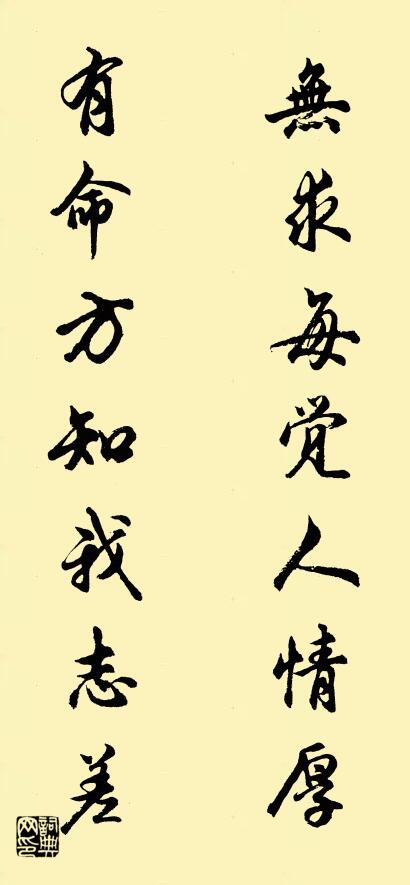 無求每覺人情厚
有命方知我志差
詞典网印